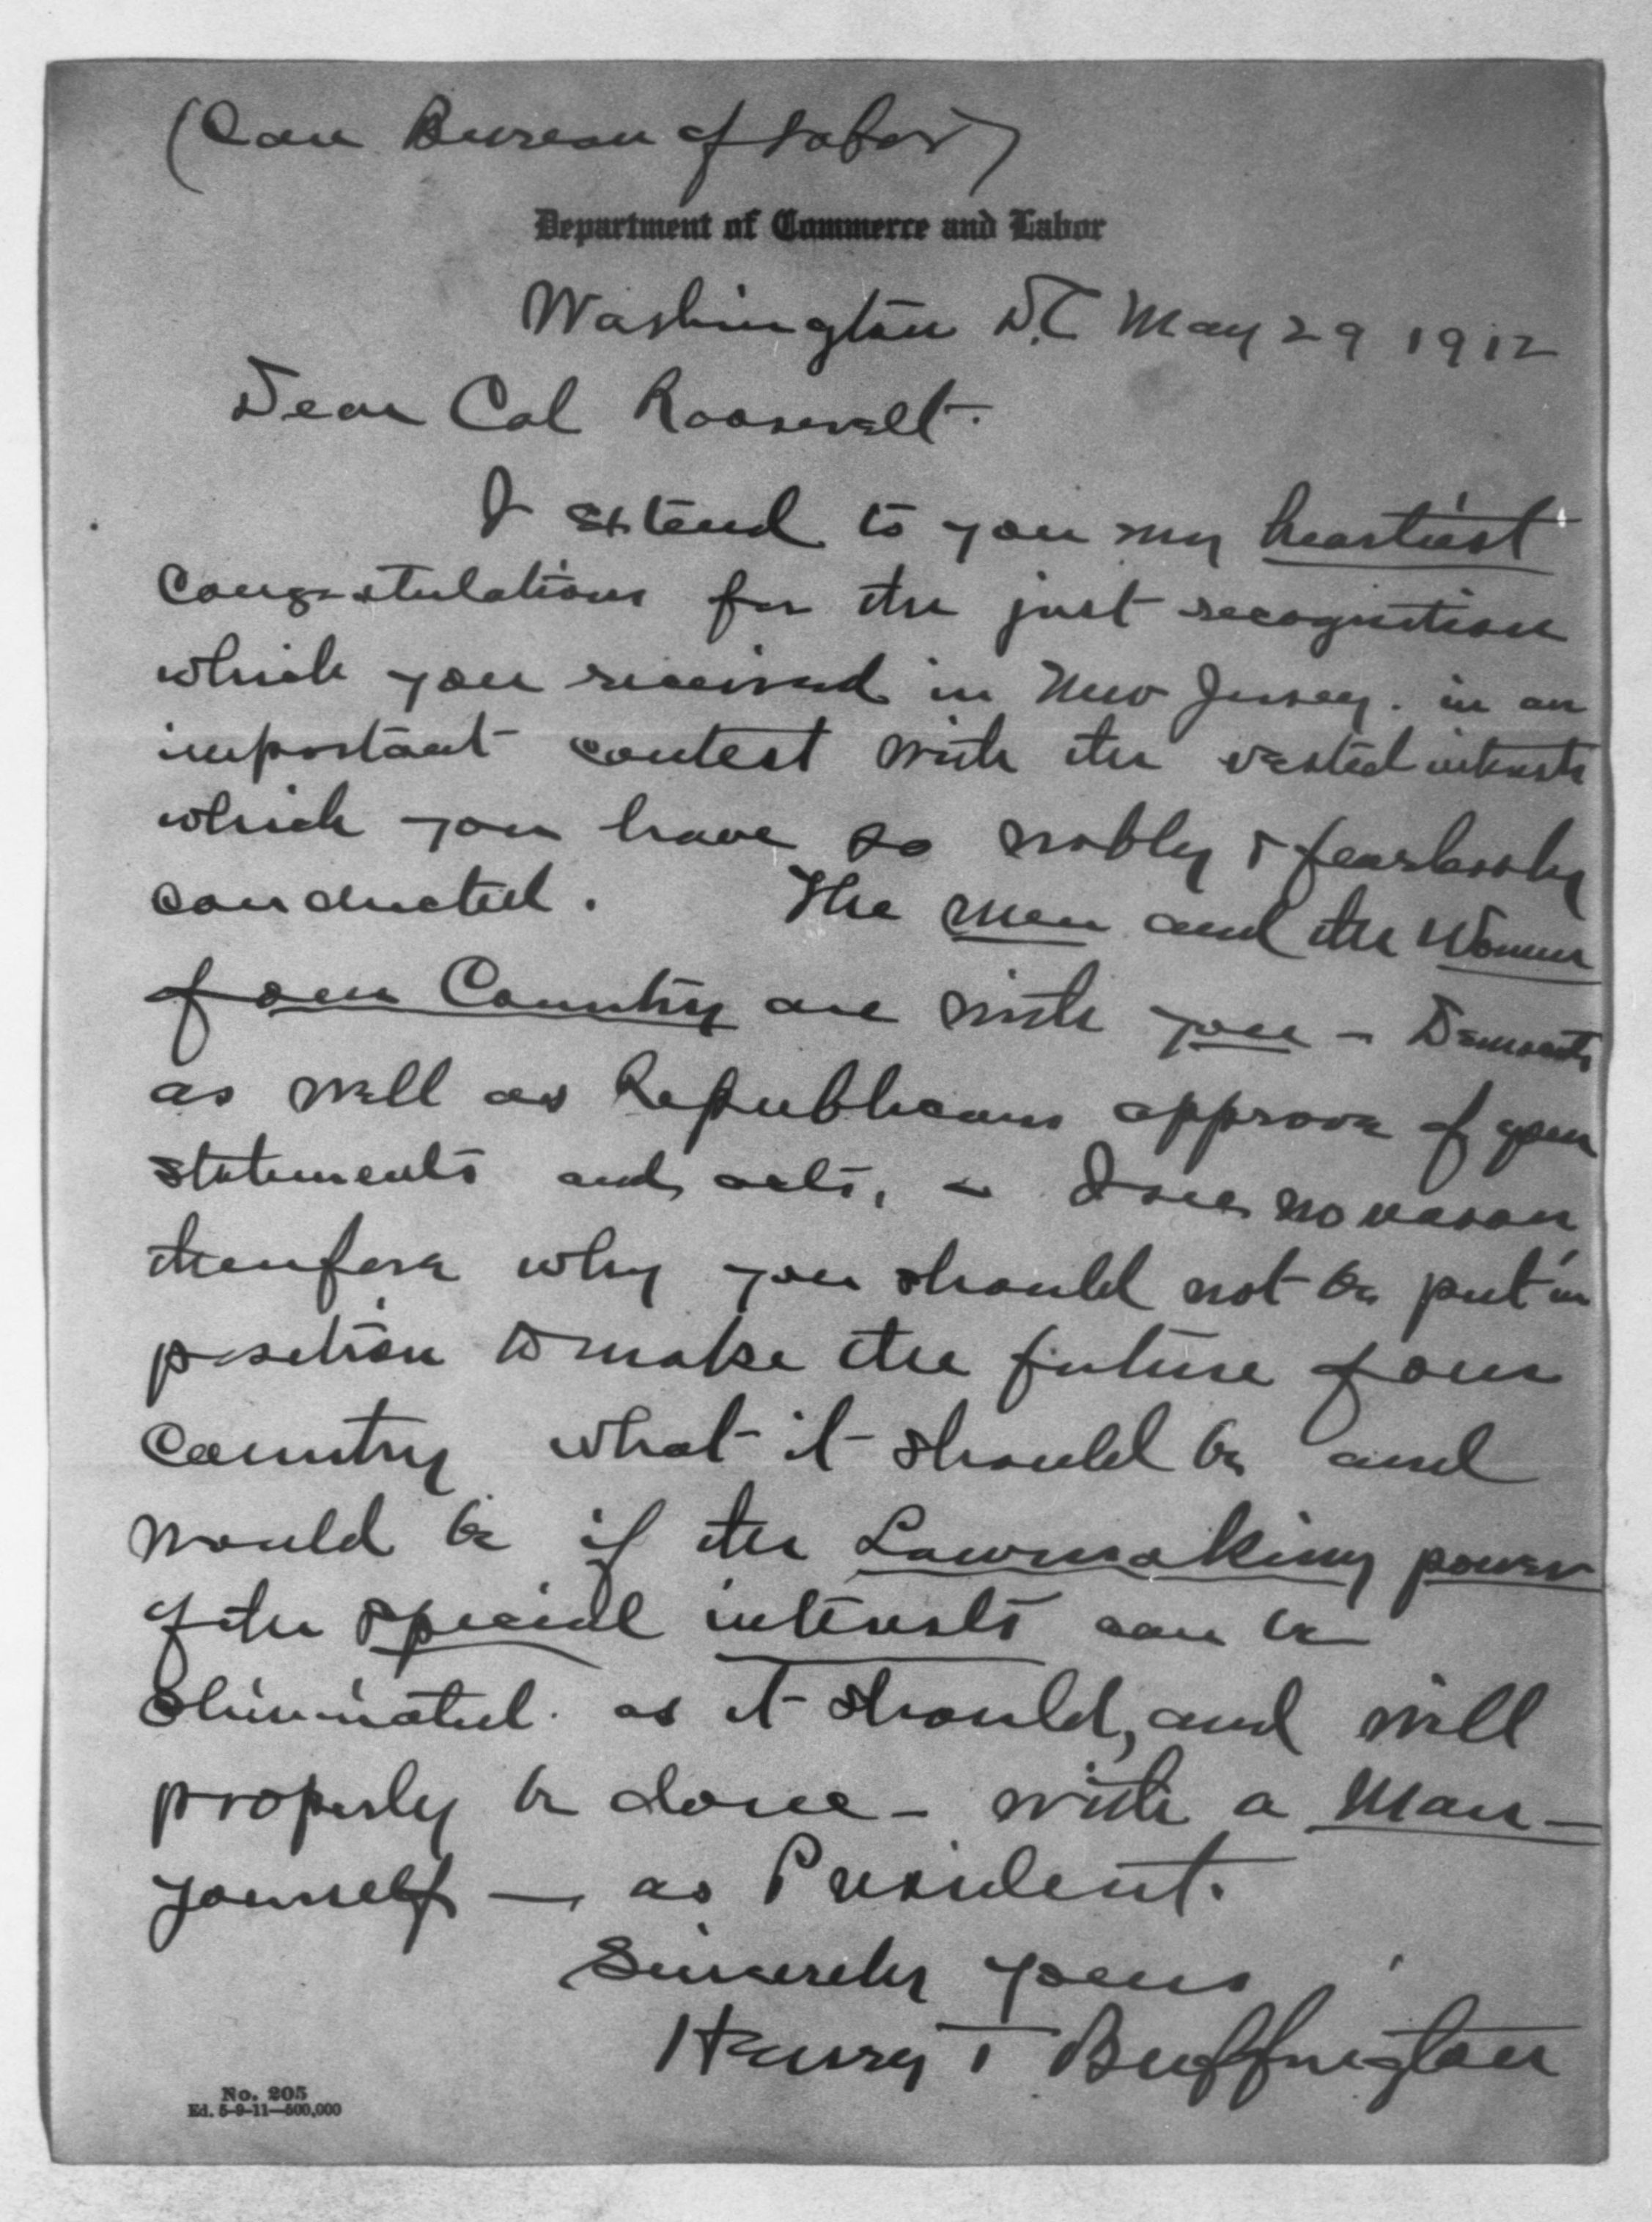 (Care Bureau of Labor)
Department of Commerce and Labor
Washington D.C May 29 1912
Dear Col Roosevelt.
I extend to you my heartiest
congratulations for the just recognition
which you received in New Jersey. in an
important contest with the vested interests
which you have so nobly & fearlessly
conducted. The men and the Women
of our Country are with you - Democrats
as well as Republicans approve of your
statements and acts, - I see no reason
therefore why you should not be put in
position to make the future of our
Country what it should be and
would be if the Lawmaking power
of the special interests can be
eliminated. as it should, and will
properly be done - with a Man -
yourself - as President.
Sincerely yours
Henry T Buffington
No. 205
Ed. 5-9-11—500,000